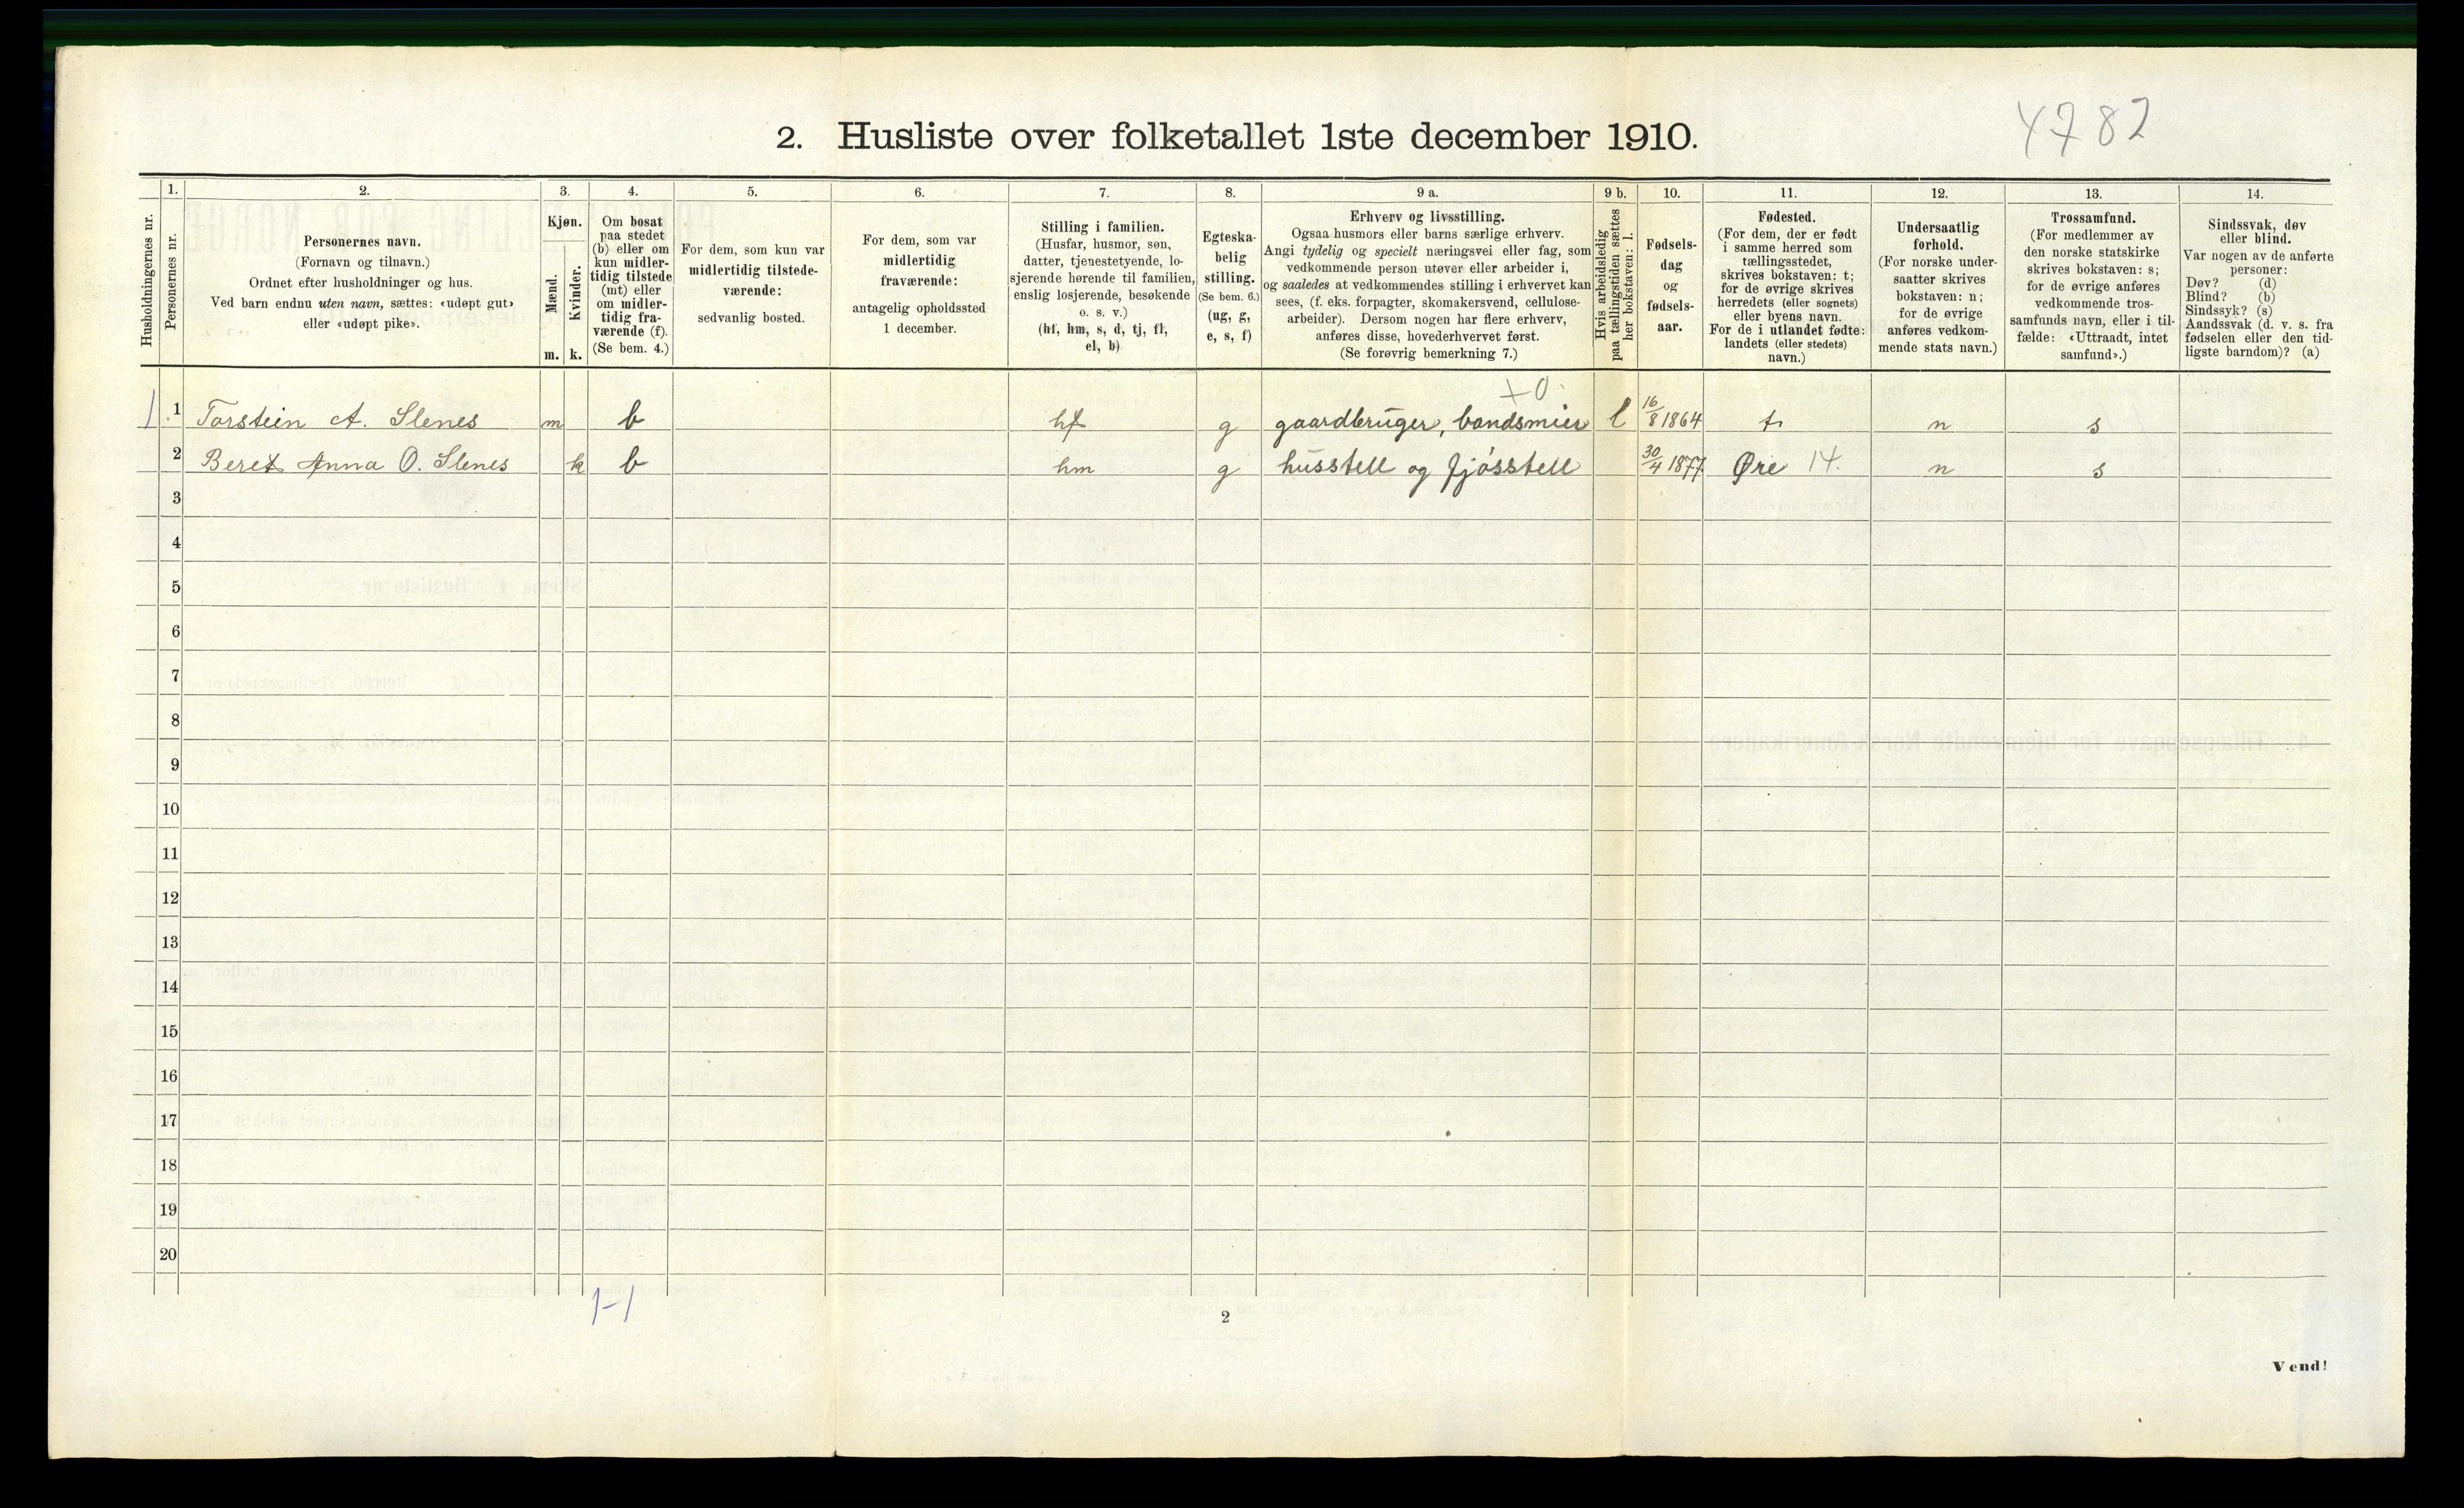 4782
2. Husliste over folketallet 1ste december 1910.
Husholdningernes nr.
1.
Personernes nr.
2.
Personernes navn.
(Fornavn og tilnavn.)
Ordnet efter husholdninger og hus.
Ved barn endnu uten navn, sættes: «udøpt gut»
eller «udøpt pike».
3.
Kjøn.
Mænd.
Kvinder.
m. k.
4.
Om bosat
paa stedet
(b) eller om
kun midler-
tidig tilstede
(mt) eller
om midler-
tidig fra-
værende (f).
(Se bem. 4.)
5.
For dem, som kun var
midlertidig tilstede-
værende:
sedvanlig bosted.
6.
For dem, som var
midlertidig
fraværende:
antagelig opholdssted
1 december.
7.
Stilling i familien.
(Husfar, husmor, søn,
datter, tjenestetyende, lo-
sjerende hørende til familien,
enslig losjerende, besøkende
o. s. v.)
(hf, hm, s, d, tj, fl,
el, b)
8.
Egteska-
belig
stilling.
(Se bem. 6.)
(ug, g,
e, s, f)
9 a.
Erhverv og livsstilling.
Ogsaa husmors eller barns særlige erhverv.
Angi tydelig og specielt næringsvei eller fag, som
vedkommende person utøver eller arbeider i,
og saaledes at vedkommendes stilling i erhvervet kan
sees, (f. eks. forpagter, skomakersvend, cellulose-
arbeider). Dersom nogen har flere erhverv,
anføres disse, hovederhvervet først.
(Se forøvrig bemerkning 7.)
9 b.
Hvis arbeidsledig
paa tællingstiden sættes
her bokstaven: l.
10.
Fødsels-
dag
og
fødsels-
aar.
11.
Fødested.
(For dem, der er født
i samme herred som
tællingsstedet,
skrives bokstaven: t;
for de øvrige skrives
herredets (eller sognets)
eller byens navn.
For de i utlandet fødte:
landets (eller stedets)
navn.)
12.
Undersaatlig
forhold.
(For norske under-
saatter skrives
bokstaven: n;
for de øvrige
anføres vedkom-
mende stats navn.)
13.
Trossamfund.
(For medlemmer av
den norske statskirke
skrives bokstaven: s;
for de øvrige anføres
vedkommende tros-
samfunds navn, eller i til-
fælde: «Uttraadt, intet
samfund».)
14.
Sindssvak, døv
eller blind.
Var nogen av de anførte
personer:
Døv? (d)
Blind? (b)
Sindssyk? (s)
Aandssvak (d. v. s. fra
fødselen eller den tid-
ligste barndom)? (a)
+0
1 1 Torstein A. Slenes m b hf g gaardbruger, bandsmier l 16/8 1864 t n s
2 Beret Anna O. Slenes k b hm g husstell og fjósstell 30/4 1877 Øre 14. n s
3
4
5
6
7
8
9
10
11
12
13
14
15
16
17
18
19
20
1-1
2
Vend!